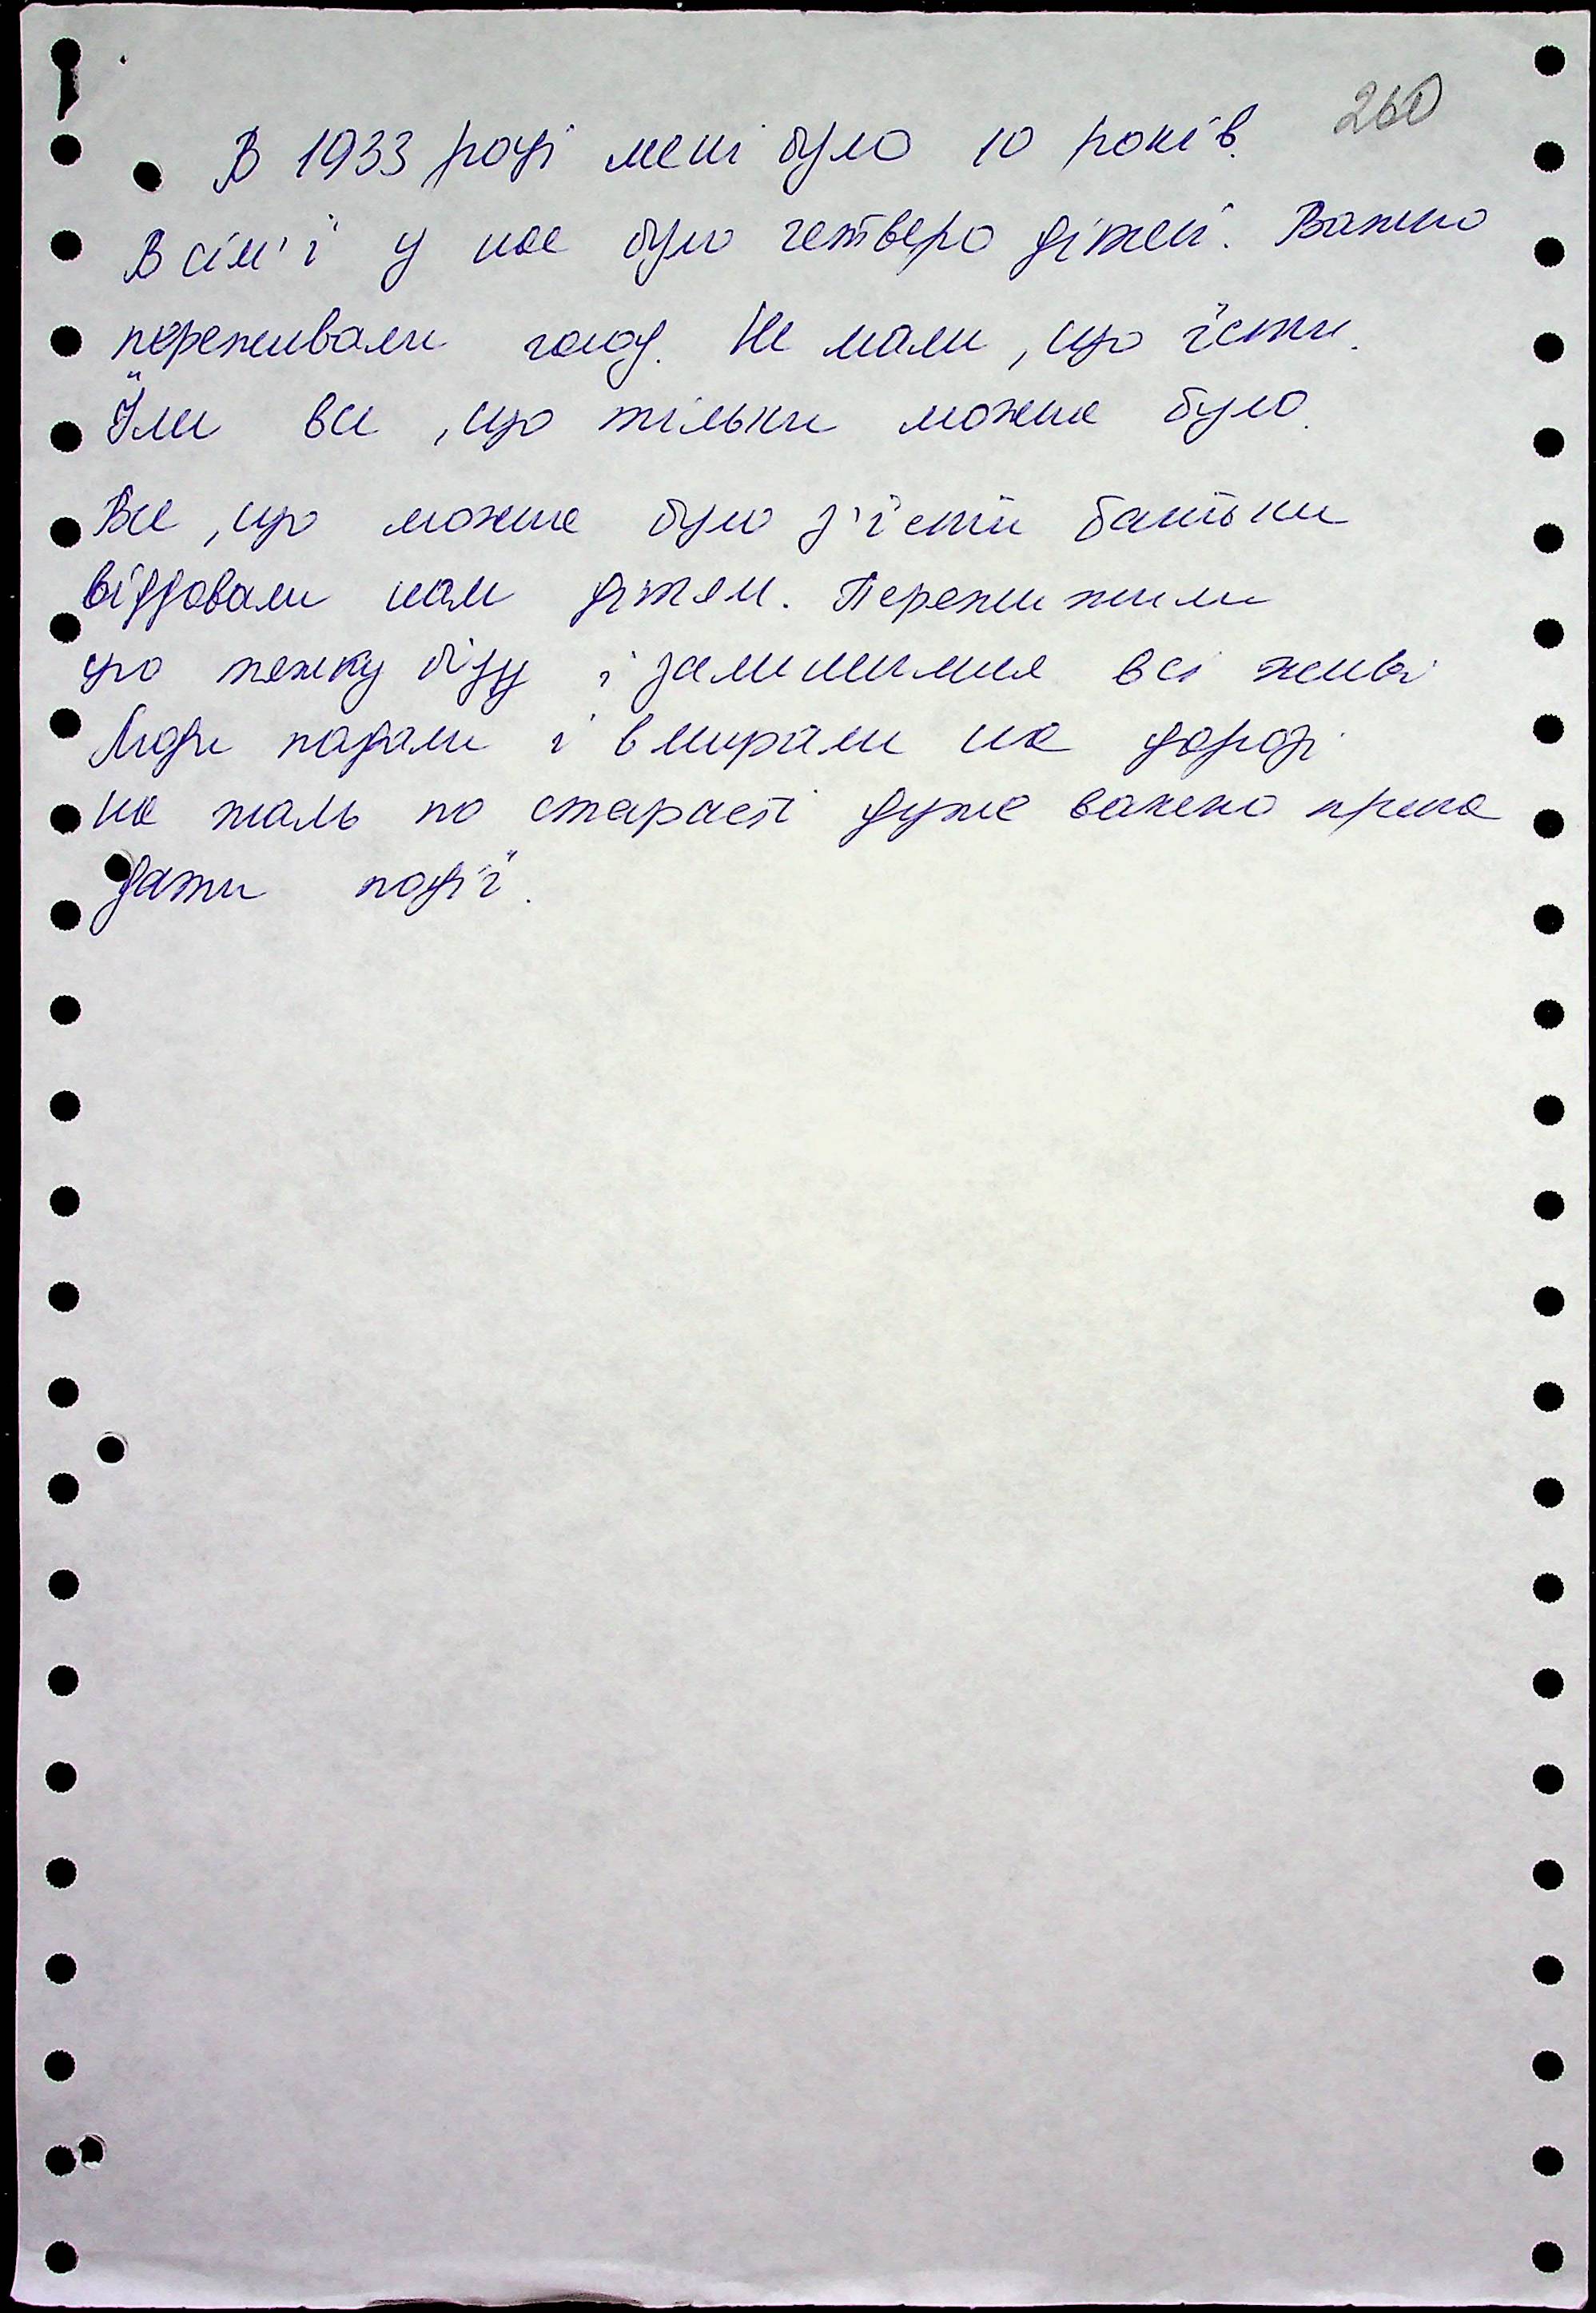 260
В 1933 році мені було 10 років.
В сім'ї у нас було четверо дітей. Важко
переживали голод. Не мали, що їсти.
Їли все, що тільки можна було.
Все, що можна було з'їсти батьки
віддавали нам дітям. Пережи жили
цю тяжку біду і залишились всі живі
Люди падали і вмирали на дорозі.
на жаль по старості дуже важко прига
дати події.